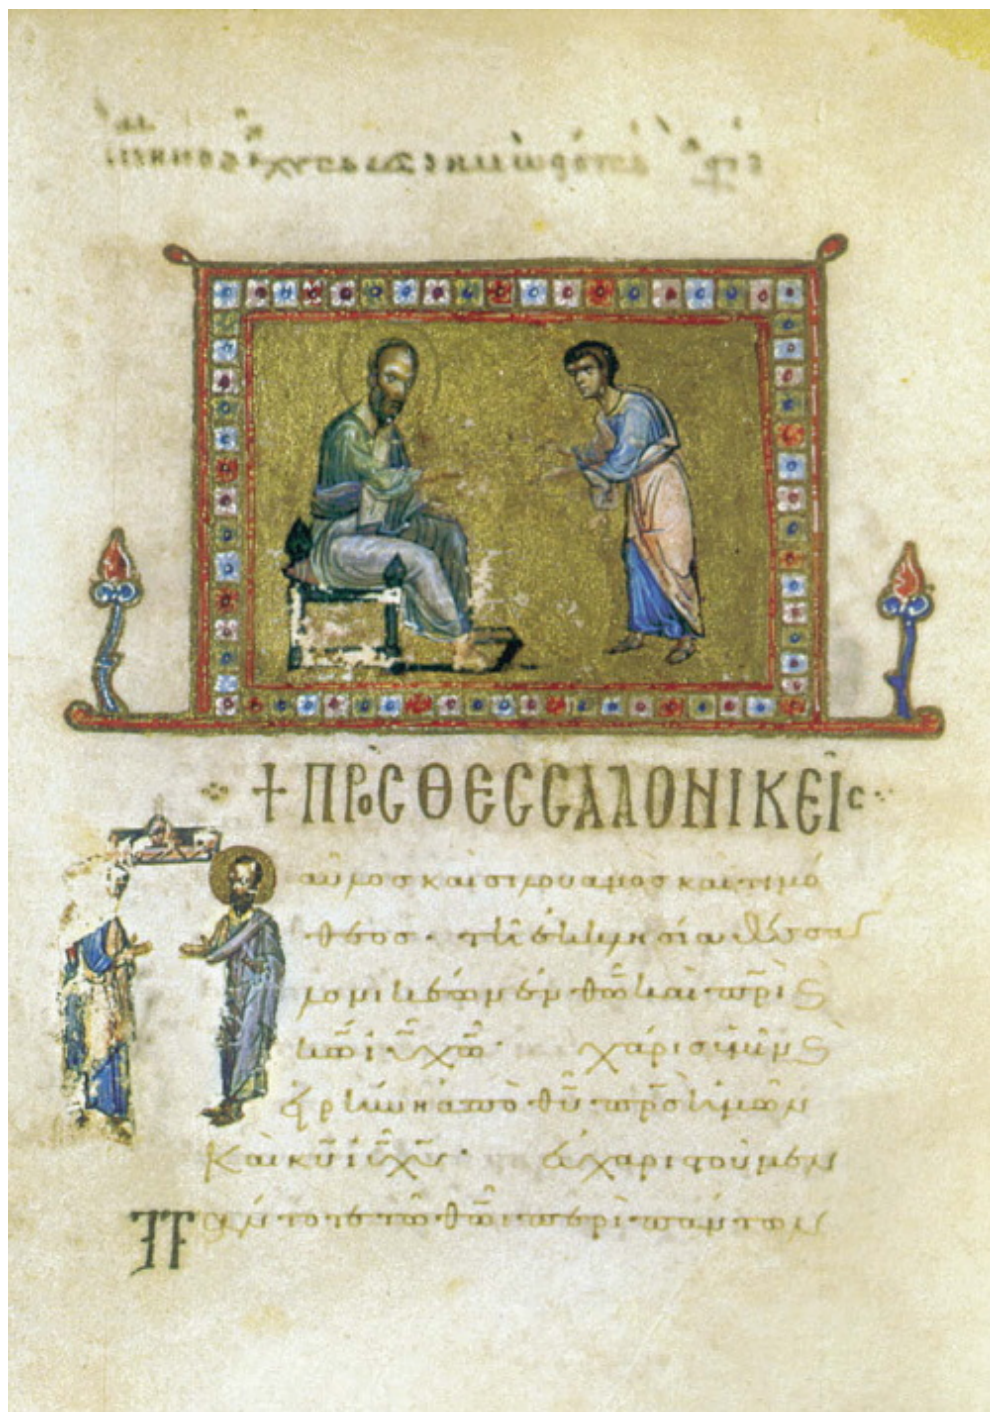 + ΠΡΟC ΘΕCCΑΛΟΝΙΚΕΙC
αῦλος και σιλουανος και τιμό
θεος· τῆ ἐκκλησία θεσσα
λονικέων ἐν θω και πρι
κω ιυ χω· χάρις ὑμῖν
εἰρήνη ἀπὸ θυ πρσ ἡμῶν
Και κυ ιυ χυ· εὐχαριστοῦμεν
τω θω περὶ πάντων